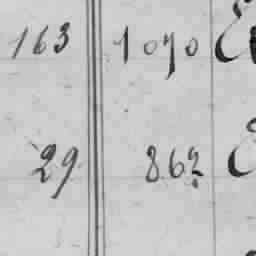 163 1070
29 862